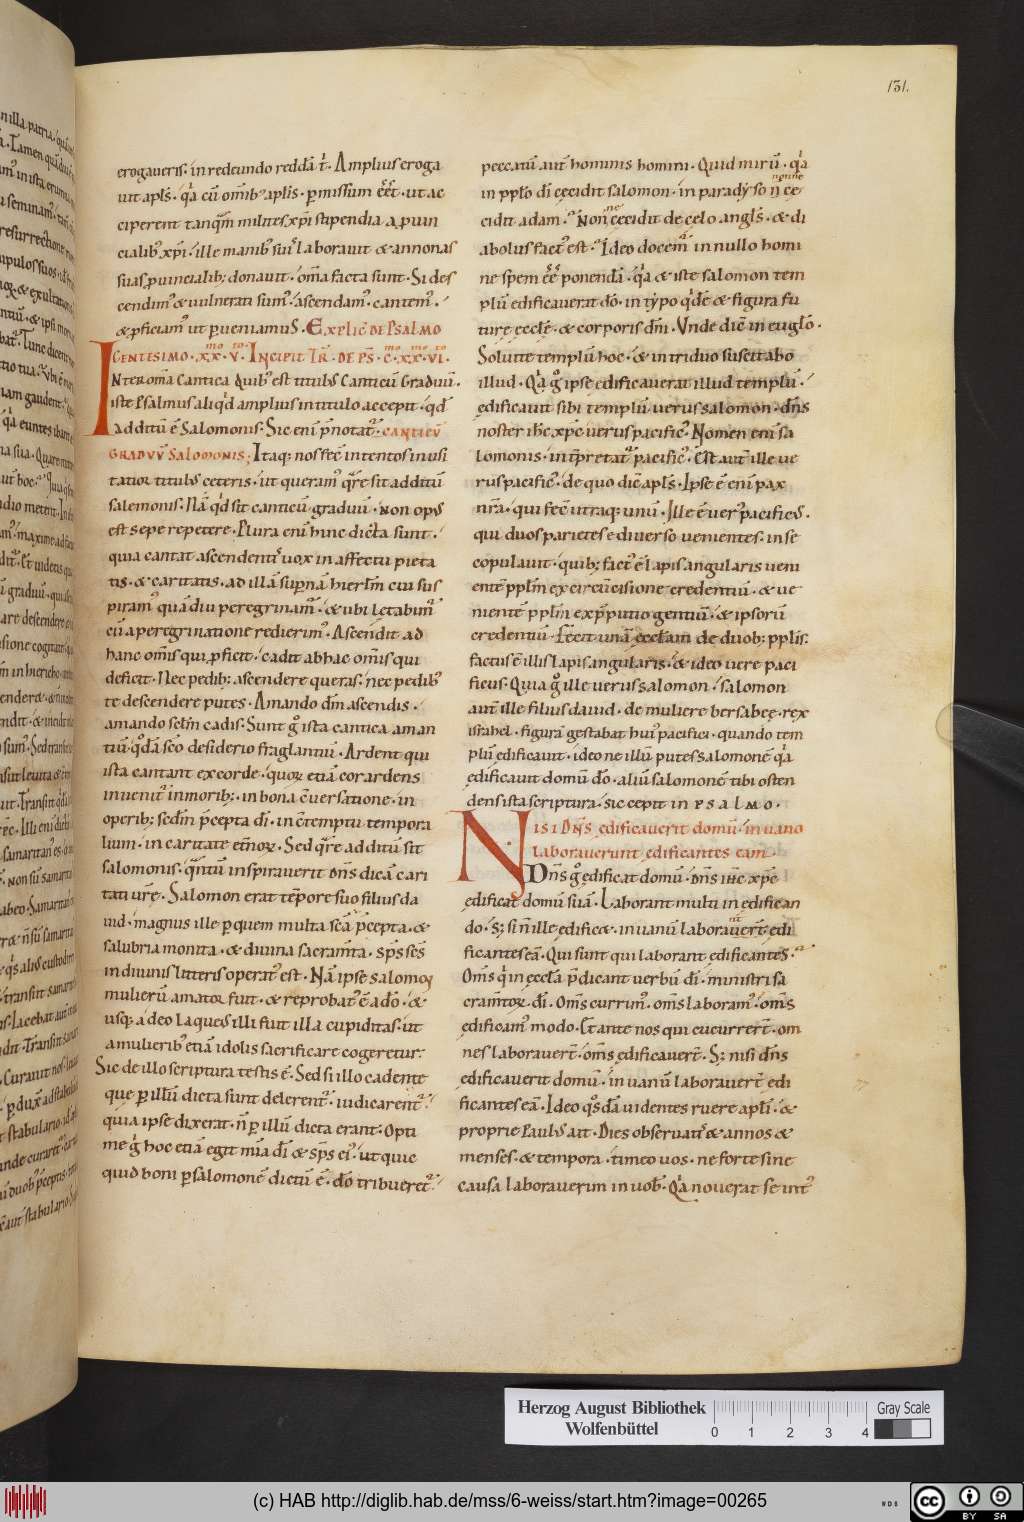 131.
erogaueris· in redeundo reddā t͛· Amplius eroga
uit apl̄s· q͛a cū om̄ib; aplis· p̱missum eēt· ut ac
ciperent tanq̄m milites xp̄i stipendia a ꝓuin
cialib; xp̄i· ille manib; suis laborauit & annonas
suas ꝓuincialib; donauit· om̄a facta sunt· Si des
cendim; & uulnerati sum;· ascendam;· cantem;·
& ꝓficiam; ut ꝑueniamus· Explic̄ de Psalmo
centesimo· xx· v· Incipit tr̄· de ps̄· c̄· xx· vi·
Inter om̄a cantica quib; est titulus canticū graduū·
iste psalmus aliq͛d amplius in titulo accepit· qd̄
additū ē Salomonis· Sic eni p̄notat͛· canticū
graduū salomonis; Itaq; nos fec̄ intentos inusi
tatior titulus ceteris· ut queram; q̄re sit additū
salemonis· Nā q͛d sit canticū graduū· non opus
est sepe repetere· Plura eni hinc dicta sunt·
quia cantat ascendent; uox in affectu pieta
tis· & caritatis· ad illā sup̱nā hierlm̄ cui sus
piram; quā diu peregrinam;· & ubi letabim͛
cū a peregrinatione redierim;· Ascendit ad
hanc om̄is qui ꝓficit· cadit ab hac om̄is qui
deficit· Nec pedib; ascendere queras· nec pedib;
te descendere putes· Amando dm̄ ascendis·
amando sclm̄ cadis· Sunt g͛ ista cantica aman
tiū q͛dā sc̄o desiderio fraglantiū· Ardent qui
ista cantant ex corde· quoꝝ etiā cor ardens
inuenit͛ in morib;· in bona c̄uersatione· in
operib; scd̄m p̄cepta dī· in c̄temptu tempora
lium· in caritate et̄noꝝ· Sed q̄re additū sit
salomonis· q̄ntū inspirauerit dn̄s dicā cari
tati ur̄e· Salomon erat tēpore suo filius da
uid· magnus ille ꝑ quem multa sc̄a p̄cepta· &
salubria monita· & diuina sacram̄ta· sp̄s sc̄s
in diuinis litteris operat; est· Nā ipse salomon
mulierū amator fuit· & reprobat; ē a dō· &
usq; adeo laqueus illi fuit illa cupiditas· ut
a mulierib; etiā idolis sacrificare cogeretur·
Sic de illo scriptura testis ē· Sed si illo cadente
que ꝑ illū dicta sunt delerent͛· iudicarent͛·
quia ipse dixerat· n̄ ꝑ illū dicta erant· Opti
me g͛ hoc etiā egit mīa dī & sp̄s ei;· ut quic
quid boni ꝑ salomonē dictū ē· dō tribueret͛·
peccatū aut̄ hominis homini· Quid mirū· q͛a
in pplo dī cecidit salomon· in paradyso n̄ ce
cidit adam· Non cecidit de celo angls̄· & di
abolus fact; est· Ideo docem͛ in nullo homi
ne spem eē ponendā· q͛a & iste salomon tem
plū edificauerat dō· in typo q͛dē & figura fu
ture eccl̄e· & corporis dn̄i· Vnde dic̄ in euglo·
Soluite templū hoc· & in triduo suscitabo
illud· Q͛a g͛ ipse edificauerat illud templū·
edificauit sibi templū uerus salomon· dn̄s
noster ihc̄ xp̄c uerus pacific;· Nomen eni sa
lomonis· int̄pretat͛ pacific;· Est aut̄ ille ue
rus pacific;· de quo dic̄ apl̄s· Ipse ē eni pax
nr̄a· qui fec̄ utraq; unū· Ille ē uer; pacificus·
qui duos parietes e diuerso uenientes· in se
copulauit· quib; fact; ē lapis angularis ueni
entē pplm̄ ex circūcisione credentiū· & ue
nientē pplm̄ ex p̄putio gentiū· & ipsorū
credentiū· Fecit unā eccl̄am de duob; pplis·
factus ē illis lapis angularis· & ideo uere paci
ficus· Quia g͛ ille uerus salomon· salomon
aut̄ ille filius dauid· de muliere bersabee· rex
israhel· figurā gestabat hui; pacifici· quando tem
plū edificauit· ideo ne illū putes salomonē q͛a
edificauit domū dō· aliū salomonē tibi osten
dens ista scriptura· sic cepit in psalmo·
Nisi dn̄s edificauerit domū· in uano
laborauerunt edificantes eam·
Dn̄s g͛ edificat domū· dn̄s ihc̄ xp̄c
edificat domū suā· Laborant multi in edifican
do· s; si n̄ ille edificet· in uanū laborauert̄ edi
ficantes eā· Qui sunt qui laborant edificantes·
Om̄s q͛ in eccl̄a p̄dicant uerbū dī· ministri sa
cram̄toꝝ dī· Om̄s currim;· om̄s laboram;· om̄s
edificam; modo· Et ante nos qui cucurrert̄· om
nes laborauert̄· om̄s edificauert̄· S; nisi dn̄s
edificauerit domū· in uanū laborauert̄ edi
ficantes eā· Ideo q͛sdā uidentes ruere apl̄i· &
proprie Paulus ait· Dies obseruatis & annos &
menses· & tempora· timeo uos· ne forte sine
causa laborauerim in uob̄· Q͛a nouerat se int;
Herzog August Bibliothek
Wolfenbüttel
0 1 2 3 4
Gray Scale
(c) HAB http://diglib.hab.de/mss/6-weiss/start.htm?image=00265
WDB
cc BY SA